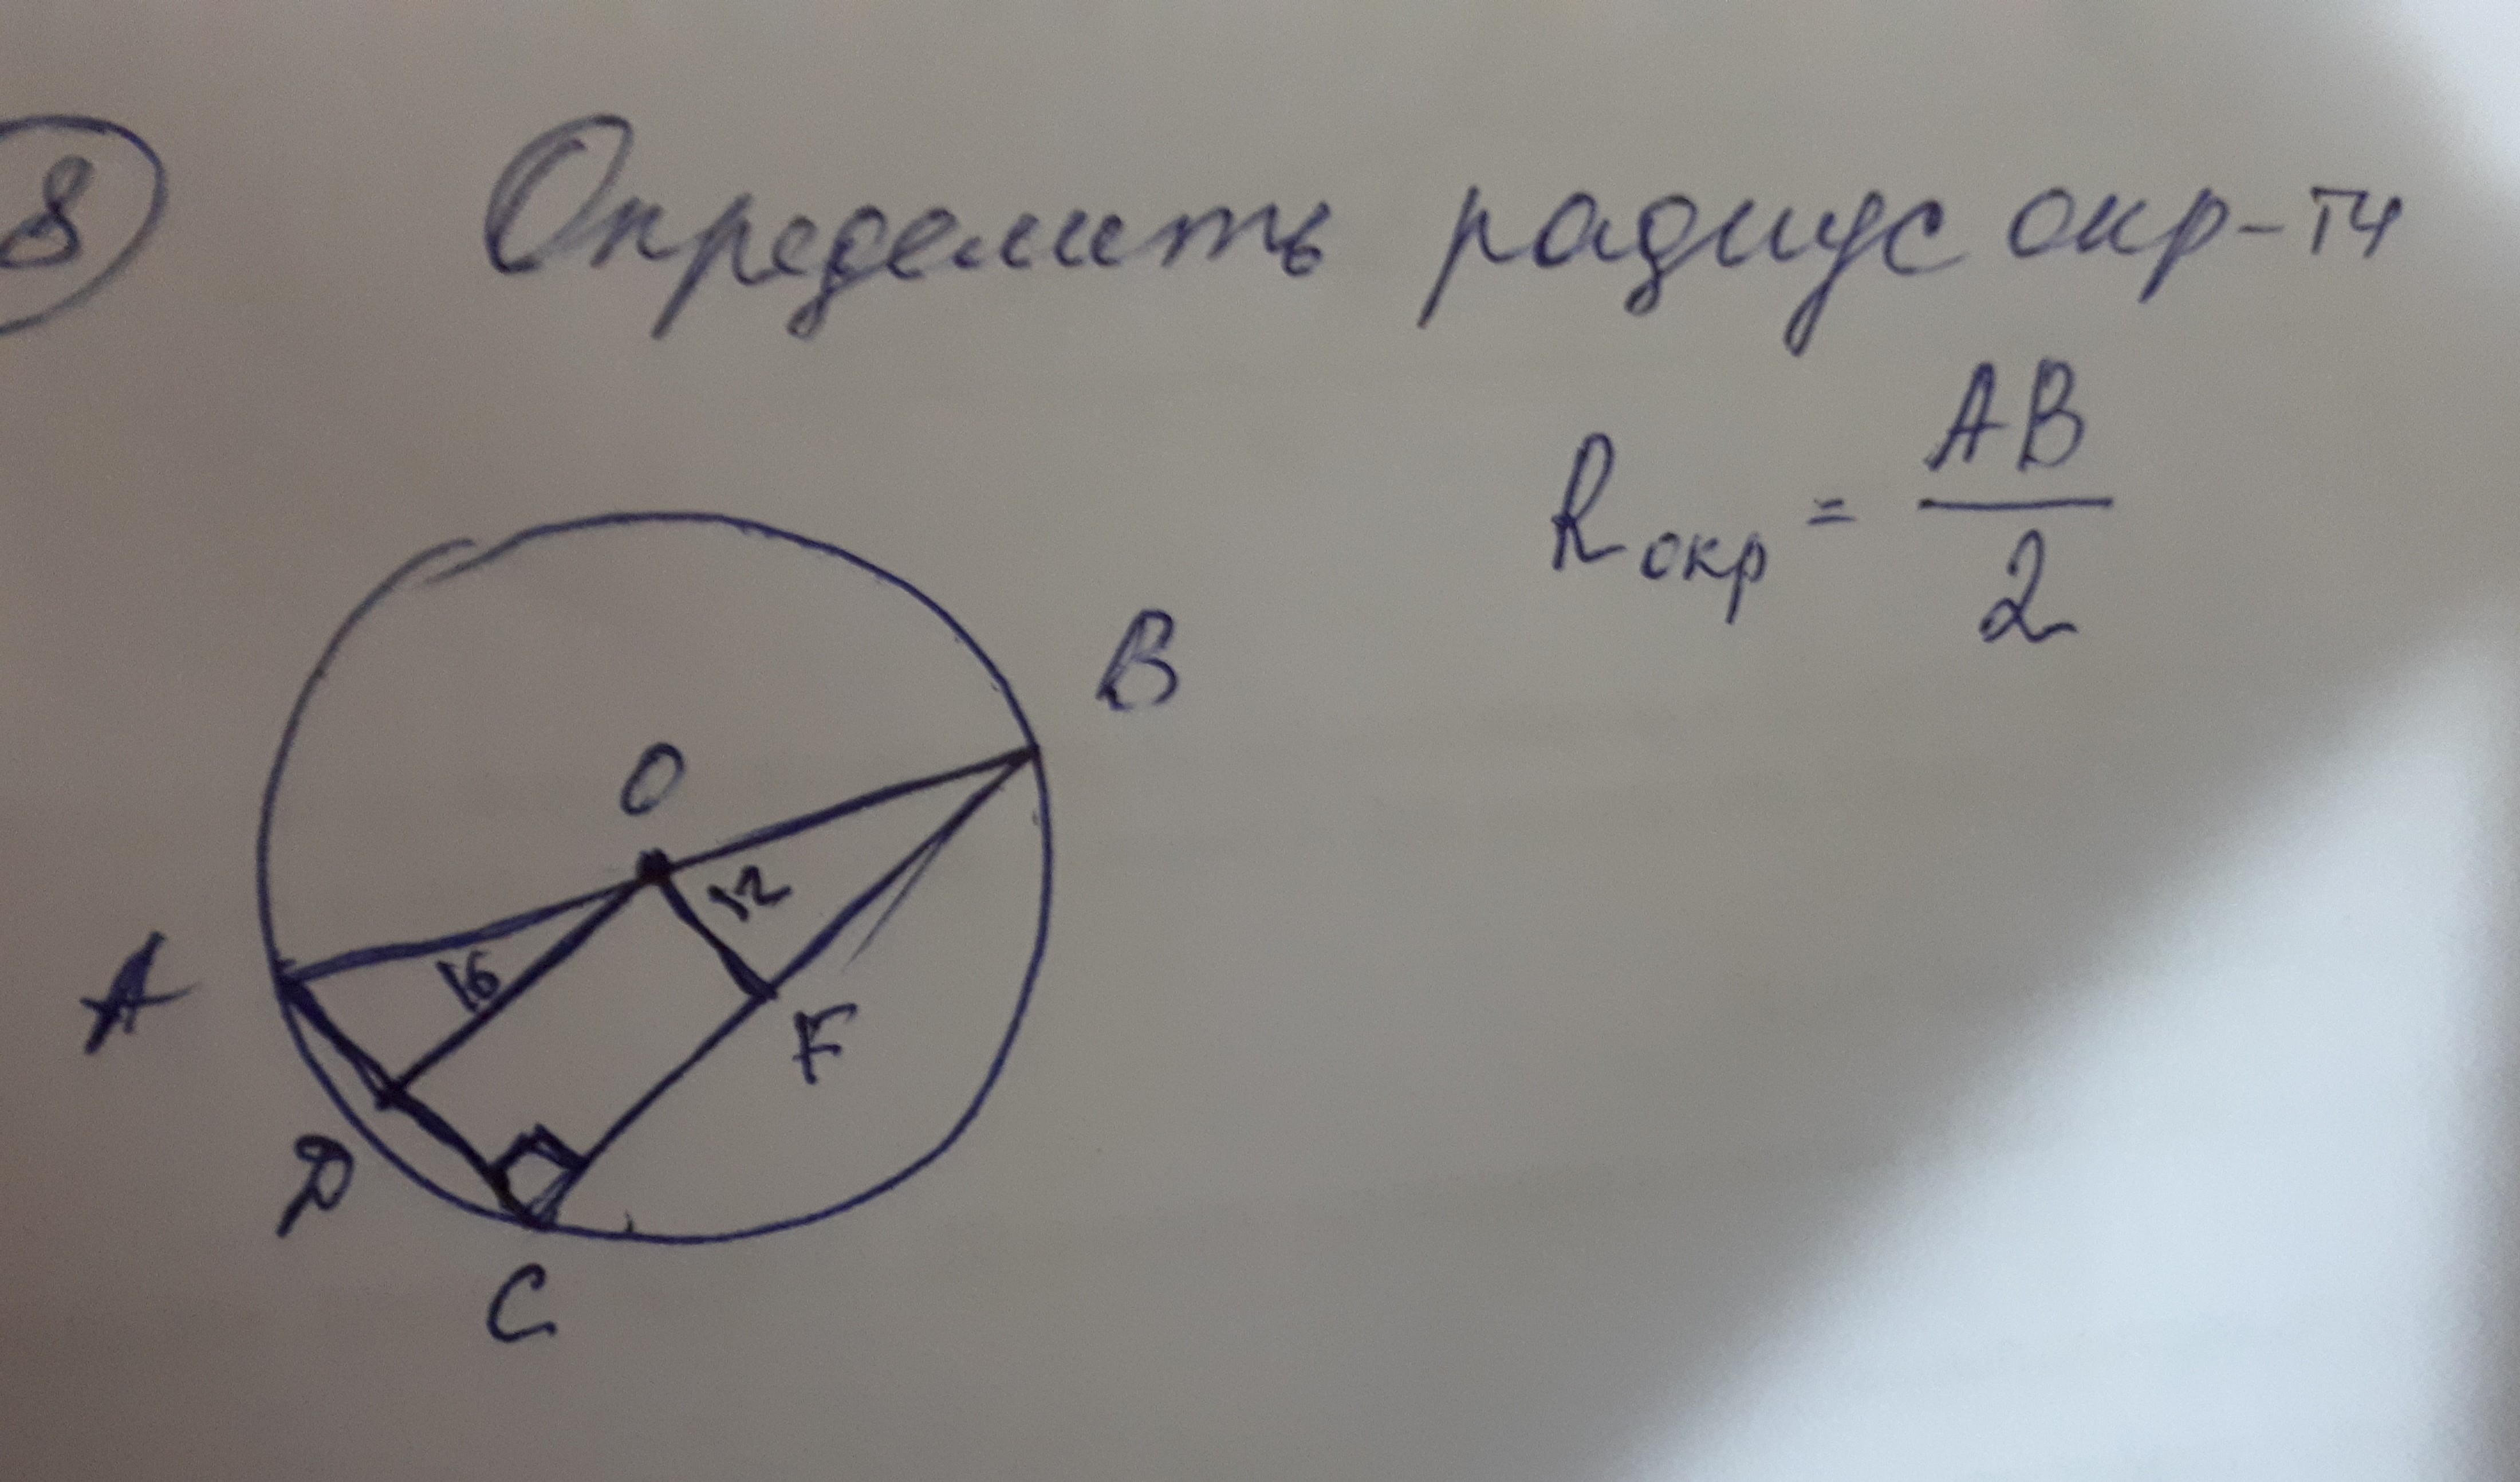 8 Определить радиус окр-ти
Rокр = AB
2
B
O
12
A
16
F
D
C